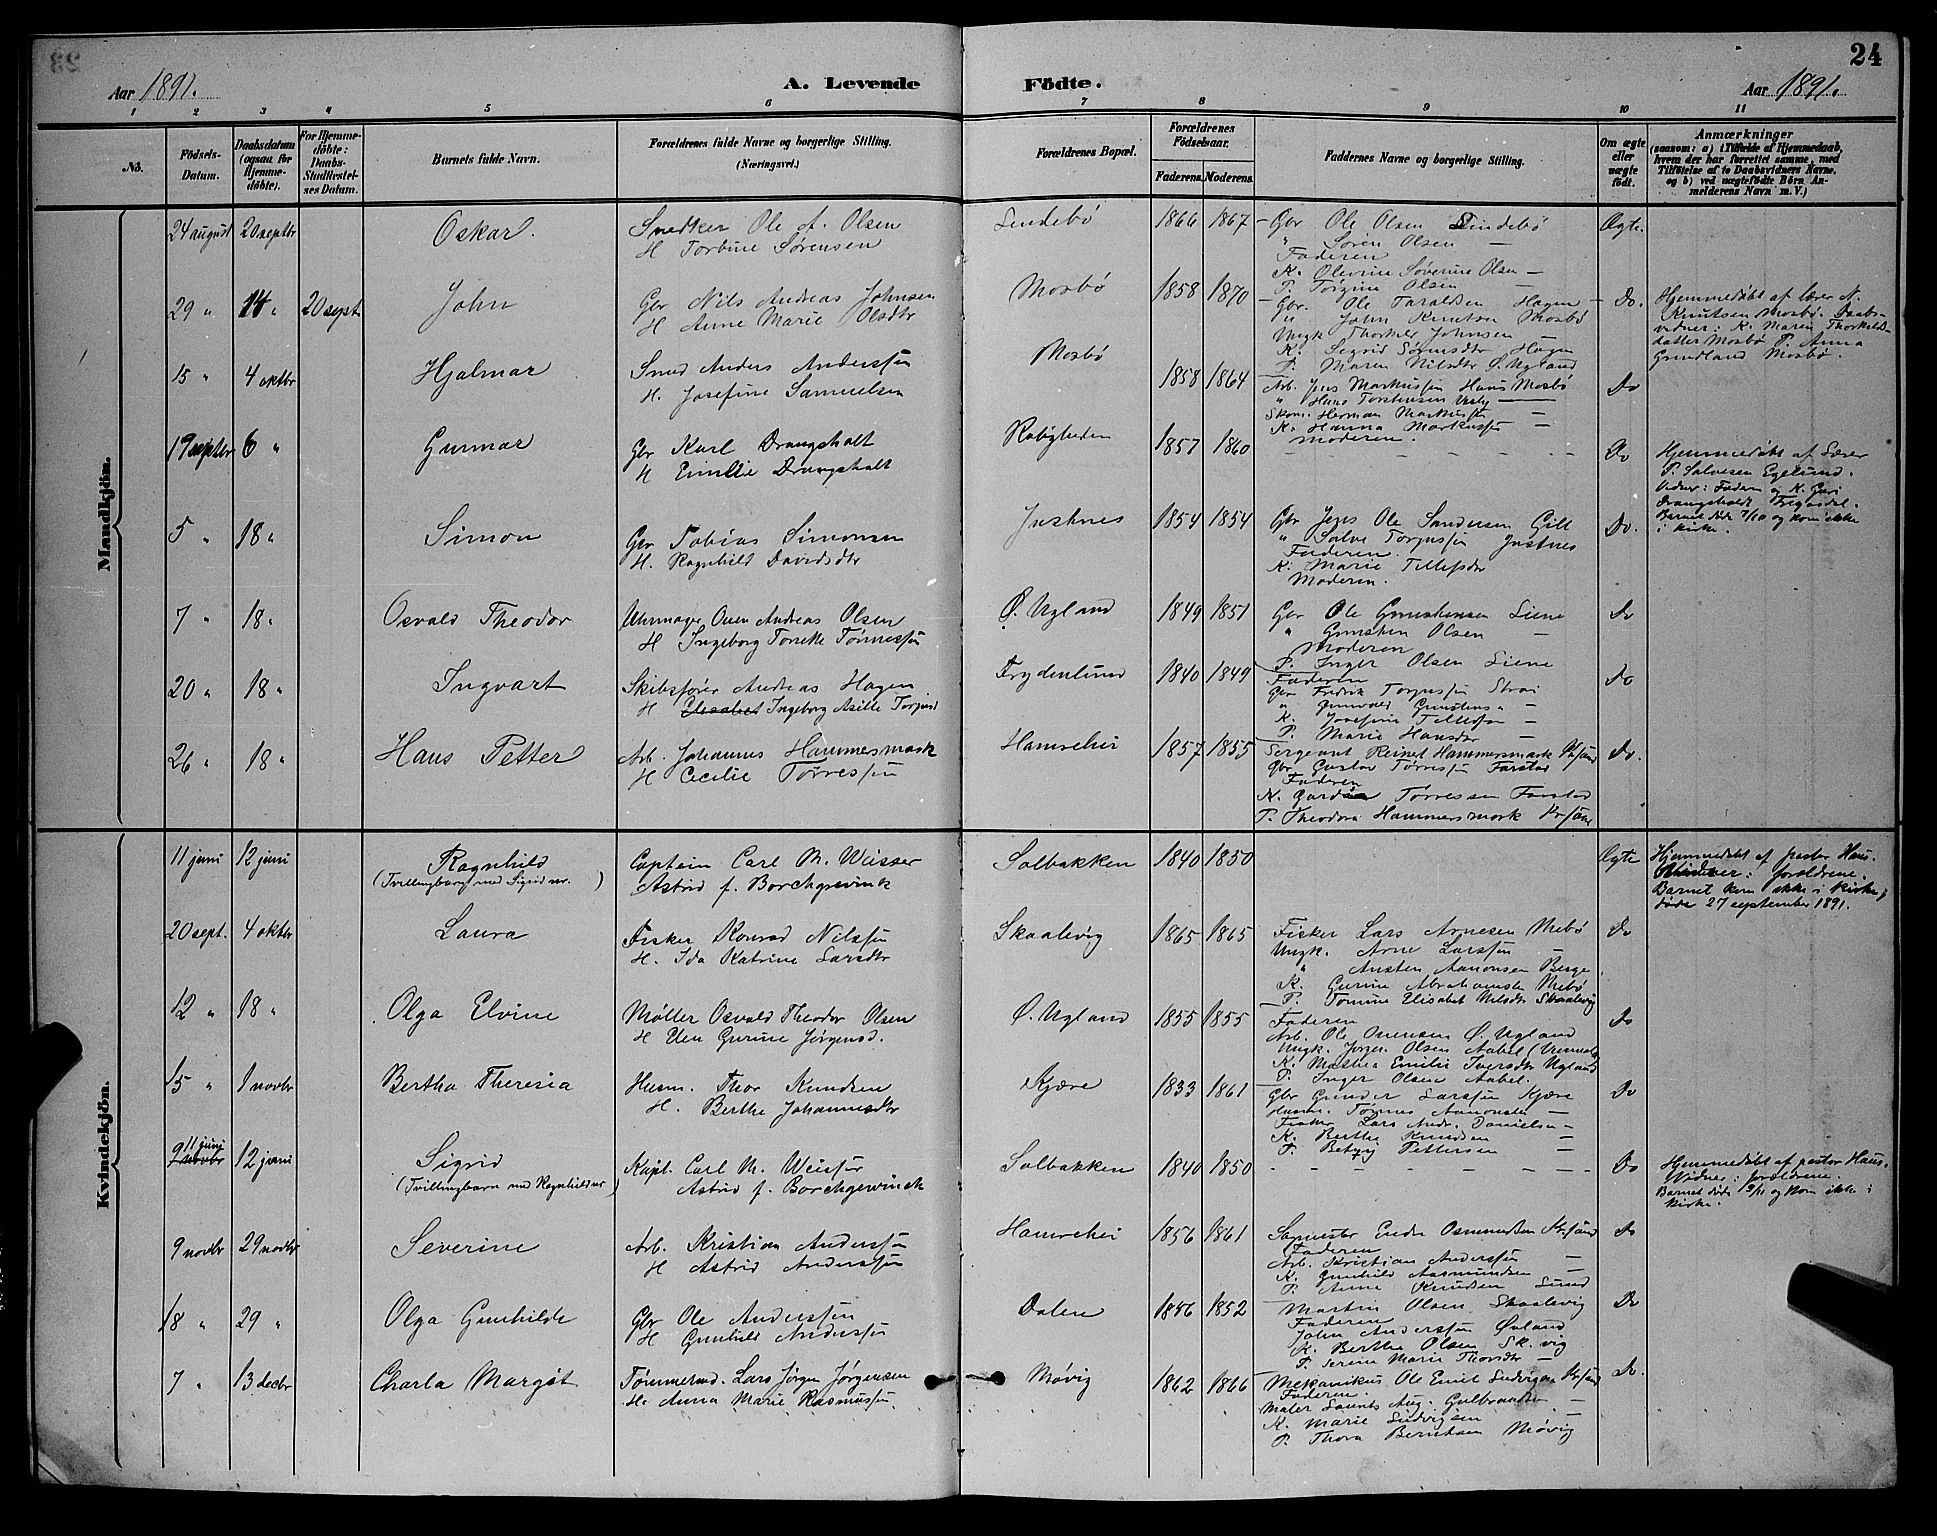 24
Aar 1891.
A. Levende Födte.
Aar 1891.
1 2 3 4 5 6 7 8 9 10 11
No.
Födsels-Datum.
Daabsdatum (ogsaa for Hjemme-döbte).
For Hjemme-döbte: Daabs-Stadfæstel-ses Datum.
Barnets fulde Navn.
Forældrenes fulde Navne og borgerlige Stilling. (Næringsvei.)
Forældrenes Bopæl.
Forældrenes Födselsaar.
Faderens. Moderens.
Faddernes Navne og borgerlige Stilling.
Om ægte eller uægte födt.
Anmærkninger
(saasom: a) i Tilfælde af Hjemmedaab, hvem der har forrettet samme, med Tilföielse af to Daabsvidners Navne, og b) ved uægtefödte Börn An-melderens Navn m. V.)
Mandkjön.
24 august 20 septbr Oskar. Snedker Ole A. Olsen
H. Torbine Sørensen
Lindebö 1866 1867
Gbr Ole Olsen Lindebö
" Søren Olsen —
Faderen
K. Olevine Søverine Olsen —
P. Torgine Olsen —
Ægte.
29 " 14 " 20 sept John Gbr Nils Andreas Johnsen
H Anne Marie Olsdtr
Mosbö 1858 1870
Gbr. Ole Taraldsen Hagen
" John Knutsen Mosbö
Ungk Thorkel Johnsen —
K. Sigrid Sørensdtr Hagen
P. Maren Nilsdtr Ø. Ugland
Do.
Hjemmedöbt af lærer N.
Knutsen Mosbö. Daabs-
vidner: K. Maren Thorkelds-
datter Mosbö P. Anna
Grundland Mosbö.
15 " 4 oktbr Hjalmar Smed Anders Anderssen
H. Josefine Samuelsen
Mosbö 1858 1864
Arb. Jens Markussen Haus Mosbö
" Hans Torstensen Vesty —
Skom. Herman Markussen —
K. Hanna Markussen —
Moderen.
Do
19 septbr 6 " Gunnar Gbr Karl Drangsholt
H Emilie Drangsholt
Roligheden 1857 1860
Do
Hjemmedöbt af Lærer
P. Salvesen Egelund.
Vidner: Faderen og K. Guri
Drangsholt
Barnet döde 7/10 og kom ikke
i kirke.
5 " 18 " Simon Gbr Tobias Simonsen
H. Ragnhild Davidsdtr
Justnes 1854 1854
Gbr Jens Ole Sandersen Gill
" Salve Torjussen Justnes
Faderen.
K. Marie Tellefsdtr
Moderen.
Do.
7 " 18 " Osvald Theodor Uhrmager Oven Andreas Olsen
H Ingeborg Torette Tønnessen
Ø. Ugland 1849 1851
Gbr Ole Gunstensen Liene
" Gunsten Olsen —
Moderen
P. Inger Olsen Liene
Do
20 " 18 " Ingvart Skibsfører Andreas Hagen
H Elisabet Ingeborg Asille Torjusd
Frydenlund 1840 1849
Faderen
Gbr Fredrik Torjussen Strai
" Gunvald Gunstens "
K. Josefine Tellefsen —
P. Marie Hansdtr —
Do
26 " 18 " Hans Petter Arb. Johannes Hammersmark
H Cecilie Tørressen
Hamrehei 1857 1855
Sergeant Reinert Hammersmark Kr.sand
Gbr Gustav Tørressen Farstad
Faderen
K. Tørressen Farstad
P. Theodora Hammersmark Kr.sand
Do.
Kvindekjön.
11 juni 12 juni Ragnhild
(Tvillingbarn med Sigrid nr. )
Captein Carl M. Weisser
Astrid f. Borchgrevink
Solbakken 1840 1850
Ægte
Hjemmedöbt af pastor Haus.
Vidner: forældrene.
Barnet kom ikke i kirke,
döde 27 september 1891.
20 sept. 4 oktbr Laura Fisker Konrad Nilssen
H. Ida Katrine Larsdtr
Skaalevig 1865 1865
Fisker Lars Arnesen Mebö
Ungk. Arne Larssen —
" Austen Aanonsen Berge
K. Gurine Abrahamsdtr Mebö
P. Tomine Elisabet Nilsdtr Skaalevig
Do
12 " 18 " Olga Elvine Møller Osvald Theodor Olsen
H Gurine Jørgensd.
Ø. Ugland 1855 1855
Faderen
Arb. Ole Ovensen Ø. Ugland
Ungk. Jørgen Olsen Aabel
K. Mathea Emilie Iversdtr Ugland
P. Inger Olsen Aabel.
Do
15 " 1 novbr Bertha Theresia Husm. Thor Knudsen
H. Berthe Johannesdtr
Kjære 1833 1861
Gbr Gunder Larssen Kjære
Husm. Tønnes Aanonsen —
Fisker Lars Andr. Danielsen —
K. Berthe Knudsen —
P. Betzy Pettersen —
Do
11 juni
9 novbr 12 juni Sigrid
(Tvillingbarn med Ragnhild nr )
Kapt. Carl M. Weisser
Astrid f. Borchgrewinck
Solbakken 1840 1850
Do
Hjemmedöbt af pastor Haus.
Vidner: forældrene.
Barnet döde 9/11 og kom ikke i
kirke.
9 novbr 29 novbr Severine Arb. Kristian Anderssen
H Astrid Anderssen
Hamrehei 1856 1861
Endre Osmundsen Kr.sand
Faderen
Arb. Kristian Anderssen —
K. Gunhild Aasmundsen —
P. Anne Knudsen Lund
Do
18 " 29 " Olga Gunhilde Gbr Ole Anderssen
H Gunhild Anderssen
Dalene 1856 1852
Martin Olsen Skaalevig
Faderen
John Anderssen Øvland
K. Berthe Olsen Sk.vig
P. Serine Marie Thorsdtr —
Do
7 " 13 decbr Charla Margöt Tømmermd. Lars Jörgen Jörgensen
H. Anna Marie Rasmussen
Møvig 1862 1866
Mekanikus Ole Emil Ludvigsen Kr.sand
Faderen.
Maler Laurits Aug. Gulbrandsen —
K. Marie Ludvigsen —
P. Thora Berntsen Møvig
Do.